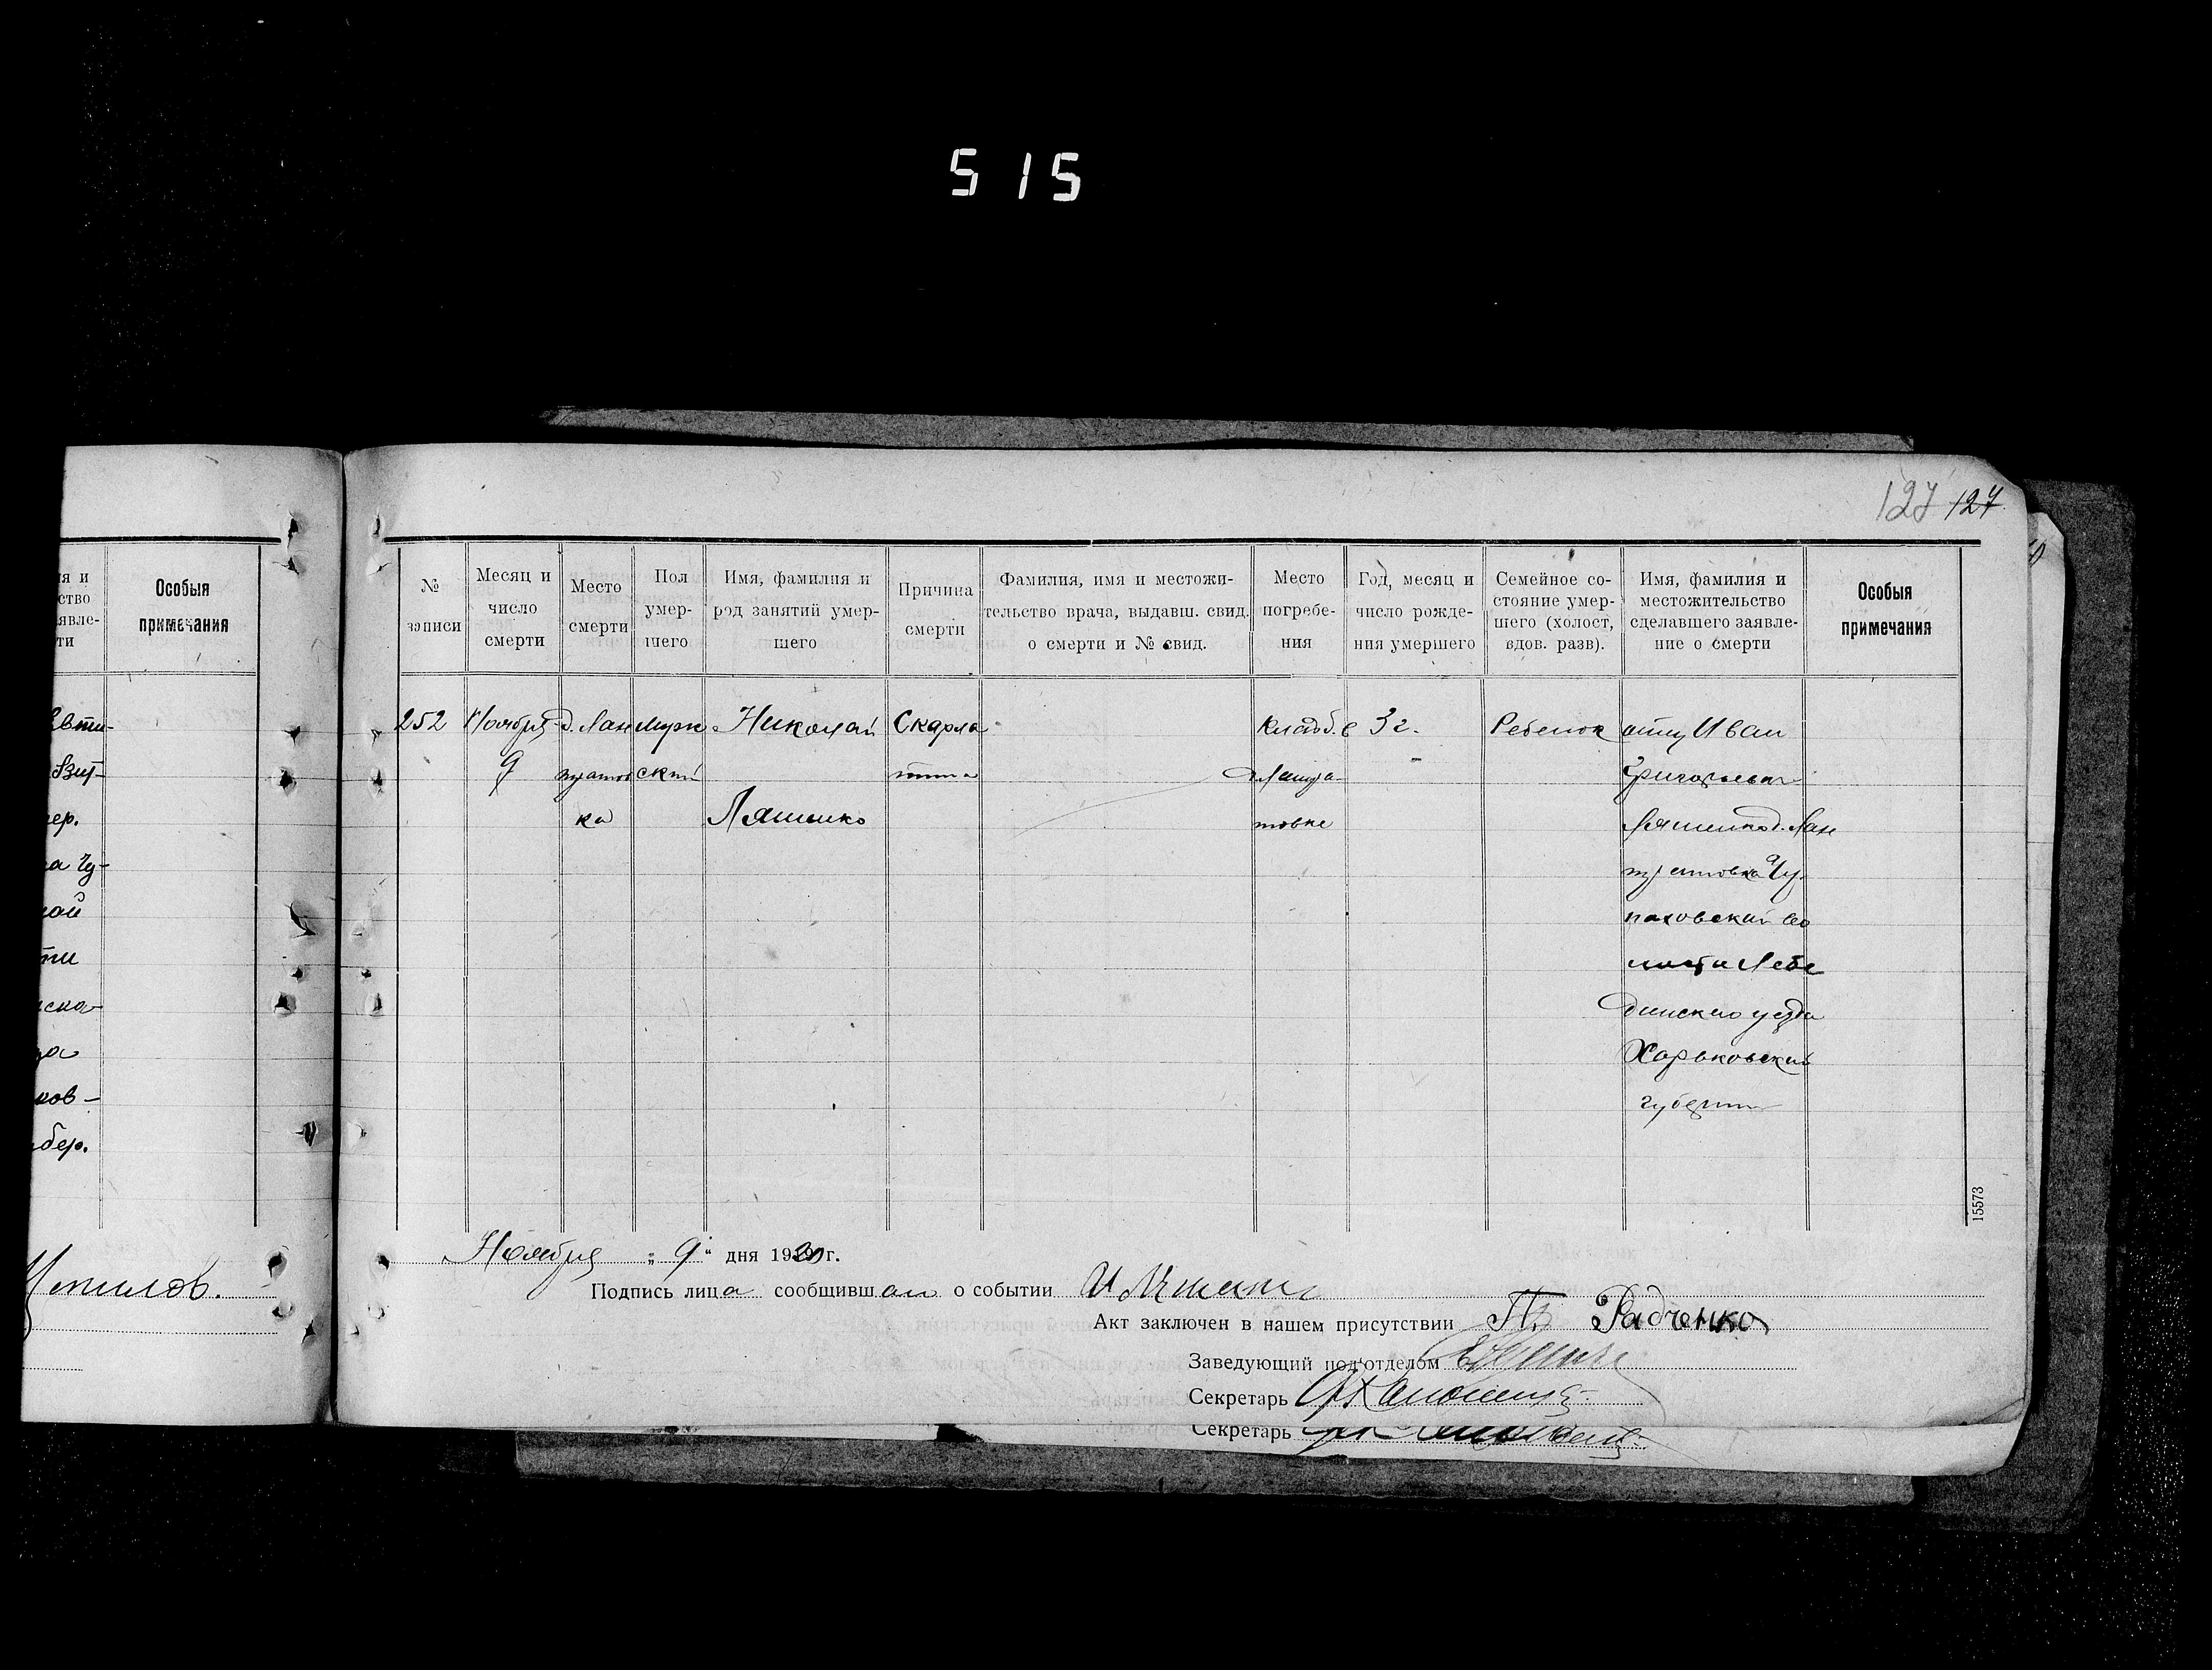 515
127 127
я и
ство
явле-
ти
Особыя
примечания
Евти-
Взы-
ер.
а Чу-
кой
ти
ска-
да
ков-
бер.
№
записи
Месяц и
число
смерти
Место
смерти
Пол
умер-
шего
Имя, фамилия и
род занятий умер-
шего
Причина
смерти
Фамилия, имя и местожи-
тельство врача, выдавш. свид.
о смерти и № свид.
Место
погребе-
ния
Год, месяц и
число рожде-
ния умершего
Семейное со-
стояние умер-
шего (холост,
вдов. разв).
Имя, фамилия и
местожительство
сделавшего заявле-
ние о смерти
Особыя
примечания
252
Ноября
9
д. Лан
ка
мужс
ской
Николай
Ляшенко
Скарла-
тина
кладб. в
товке
3 г.
Ребенок
отец Иван
Григорьевич
Ляшенко д. Лан
товка Чу-
паховской во
лости Лебе
динского уезда
Харьковской
губернии
15573
Ноября „ 9 “ дня 1920 г.
Подпись лица сообщивш о событии
Акт заключен в нашем присутствии П. Радченко
Заведующий под'отделом
Секретарь
Секретарь